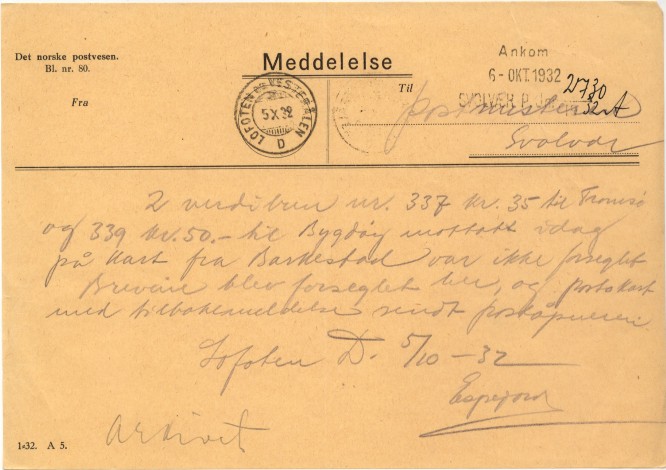 Det norske postvesen.
Bl. nr. 80.
Meddelelse
Ankom
6-OKT.1932
SVOLVÆR P.
2730
32 A
Fra
Til
LOFOTEN-VESTERÅLEN
5X32
D
postmesteren
Svolvær
2 verdibrev nr. 337 kr. 35 til Tromsø
og 339 kr. 50.- til Bygdøy mottatt idag
på kart fra Barkestad var ikke forseglet
Brevene blev forseglet her, og postkart
med tilbakemeldelse sendt poståpneren.
Lofoten D. 5/10-32
Espejord
Arkivet
1-32. A 5.